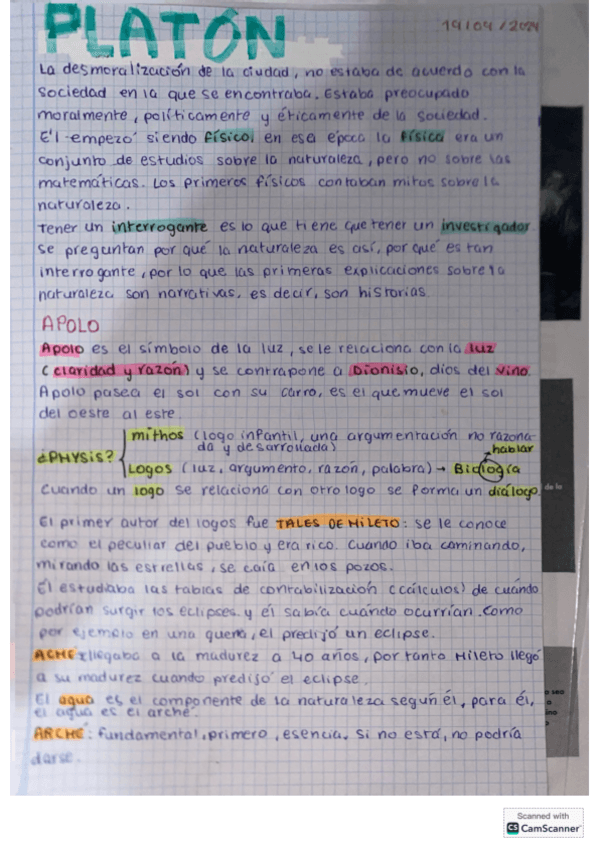 PLATÓN
19/04/2024
La desmoralización de la ciudad, no estaba de acuerdo con la
sociedad en la que se encontraba. Estaba preocupado
moralmente, políticamente y éticamente de la sociedad.
Él empezó siendo físico, en esa época la física era un
conjunto de estudios sobre la naturaleza, pero no sobre las
matemáticas. Los primeros físicos contaban mitos sobre la
naturaleza.
Tener un interrogante es lo que tiene que tener un investigador.
Se preguntan por qué la naturaleza es así, por qué es tan
interrogante, por lo que las primeras explicaciones sobre la
naturaleza son narrativas, es decir, son historias.
APOLO
Apolo es el símbolo de la luz, se le relaciona con la luz
(claridad y razón) y se contrapone a Dionisio, dios del vino.
Apolo pasea el sol con su carro, es el que mueve el sol
del oeste al este.
mithos (logo infantil, una argumentación no razona-
da y desarrollada)
hablar
¿PHYSIS?
Logos (luz, argumento, razón, palabra) → Biología
Cuando un logo se relaciona con otro logo se forma un diálogo.
El primer autor del logos fue TALES DE MILETO: se le conoce
como el peculiar del pueblo y era rico. Cuando iba caminando,
mirando las estrellas, se caía en los pozos.
Él estudiaba las tablas de contabilización (cálculos) de cuándo
podrían surgir los eclipses y él sabía cuándo ocurrían. Como
por ejemplo en una guerra, el predijó un eclipse.
ACME: llegaba a la madurez a 40 años, por tanto Mileto llegó
a su madurez cuando predijó el eclipse.
El agua es el componente de la naturaleza según él, para él,
el agua es el arché.
ARCHÉ: fundamental, primero, esencia. Si no está, no podría
darse.
de la
o seo
ino
Scanned with
CS CamScanner